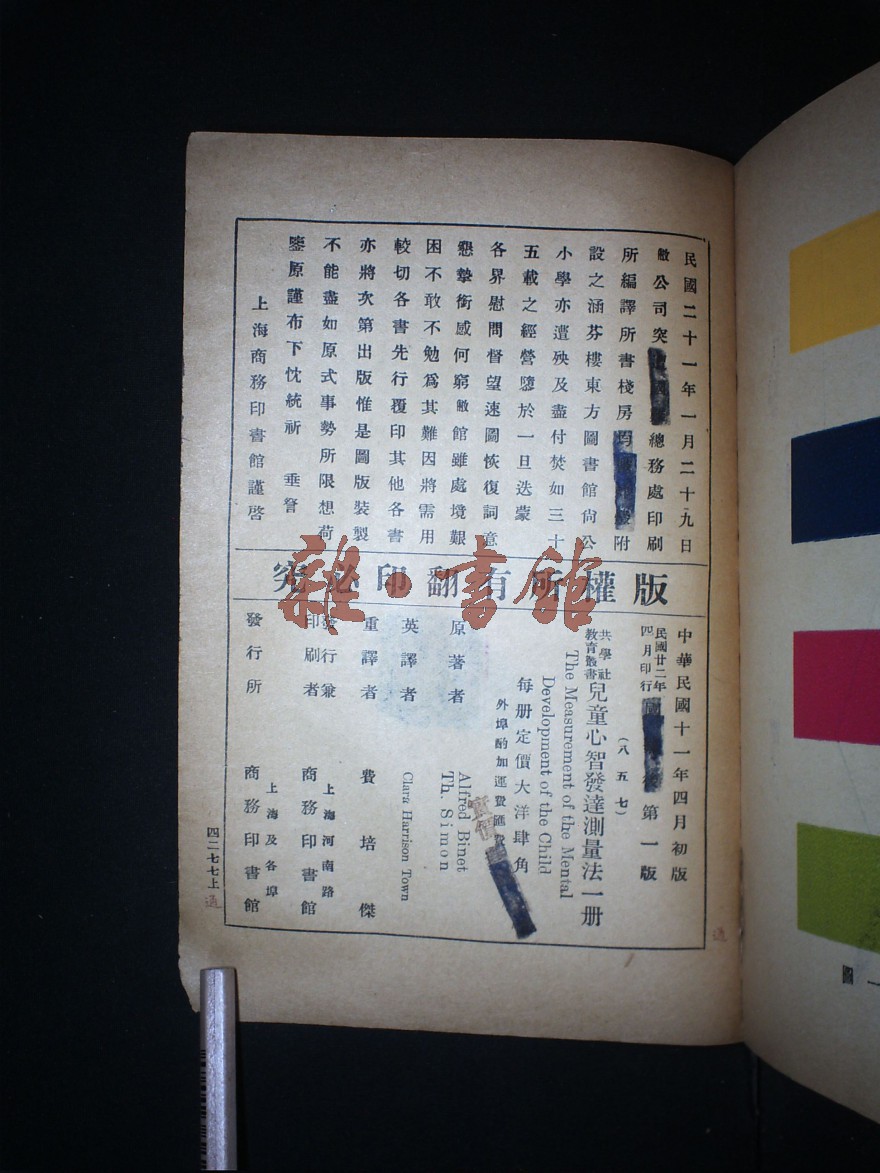 民國二十一年一月二十九日
敝公司突 總務處印刷
所編譯所書棧房均 附
設之涵芬樓東方圖書館尙公
小學亦遭殃及盡付焚如三十
五載之經營墮於一旦迭蒙
各界慰問督望速圖恢復詞意
懇摯銜感何窮敝館雖處境艱
困不敢不勉爲其難因將需用
較切各書先行覆印其他各書
亦將次第出版惟是圖版裝製
不能盡如原式事勢所限想荷
鑒原謹布下忱統祈 垂詧
上海商務印書館謹啓
版權所有翻印必究
中華民國十一年四月初版
民國廿二年四月印行 第一版
(八五七)
共學社教育叢書 兒童心智發達測量法一册
The Measurement of the Mental
Development of the Child
每册定價大洋肆角
外埠酌加運費匯
原著者 Alfred Binet
Th. Simon
英譯者 Clara Harrison Town
重譯者 費培傑
發行兼印刷者 上海河南路 商務印書館
發行所 上海及各埠 商務印書館
四二七七上
雜·書館
圖一